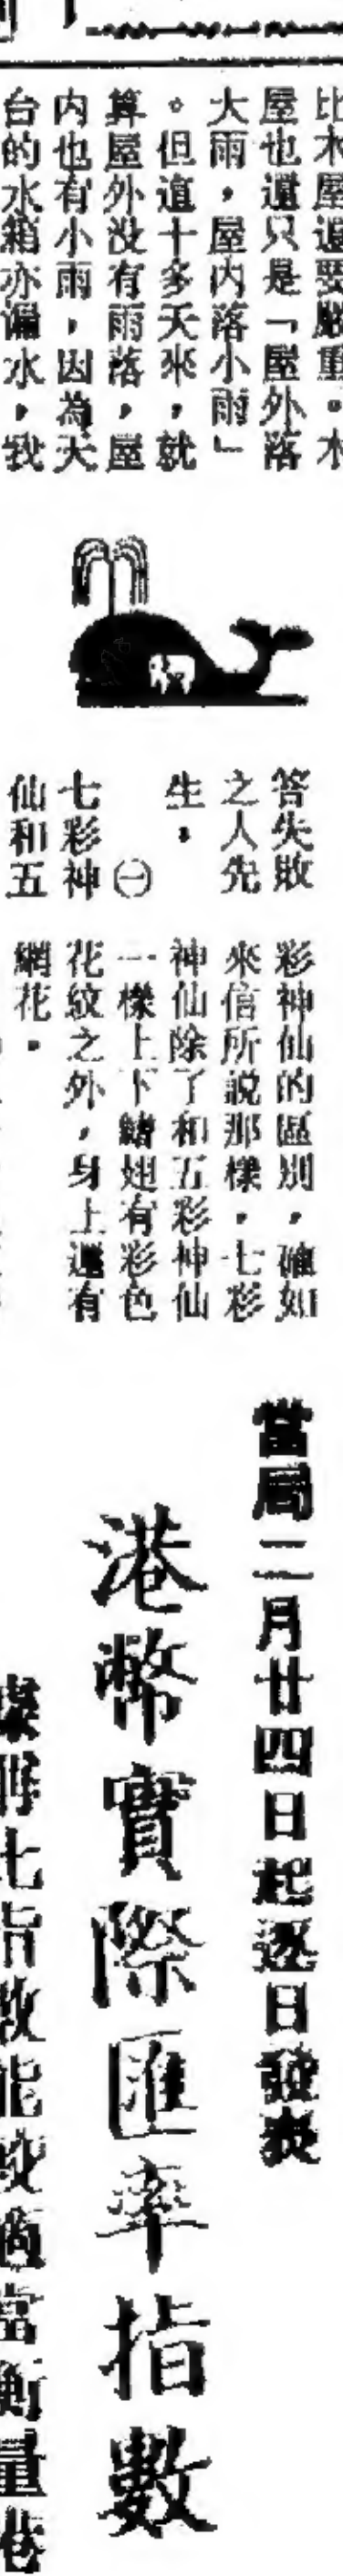 比木屋還要嚴重。木
屋也還只是「屋外落
大雨，屋内落小雨」
。但這十多天來，就
算屋外没有雨落，屋
内也有小雨，因為天
台的水箱亦漏水，我
答失敗
之人先
生，
㈠
七彩神
仙和五
彩神仙的區別，確如
來信所説那樣，七彩
神仙除了和五彩神仙
一樣上下鰭翅有彩色
花紋之外，身上還有
網花。
當局二月廿四日起逐日發表
港幣實際匯率指數
據稱此指數能較適當衡量港